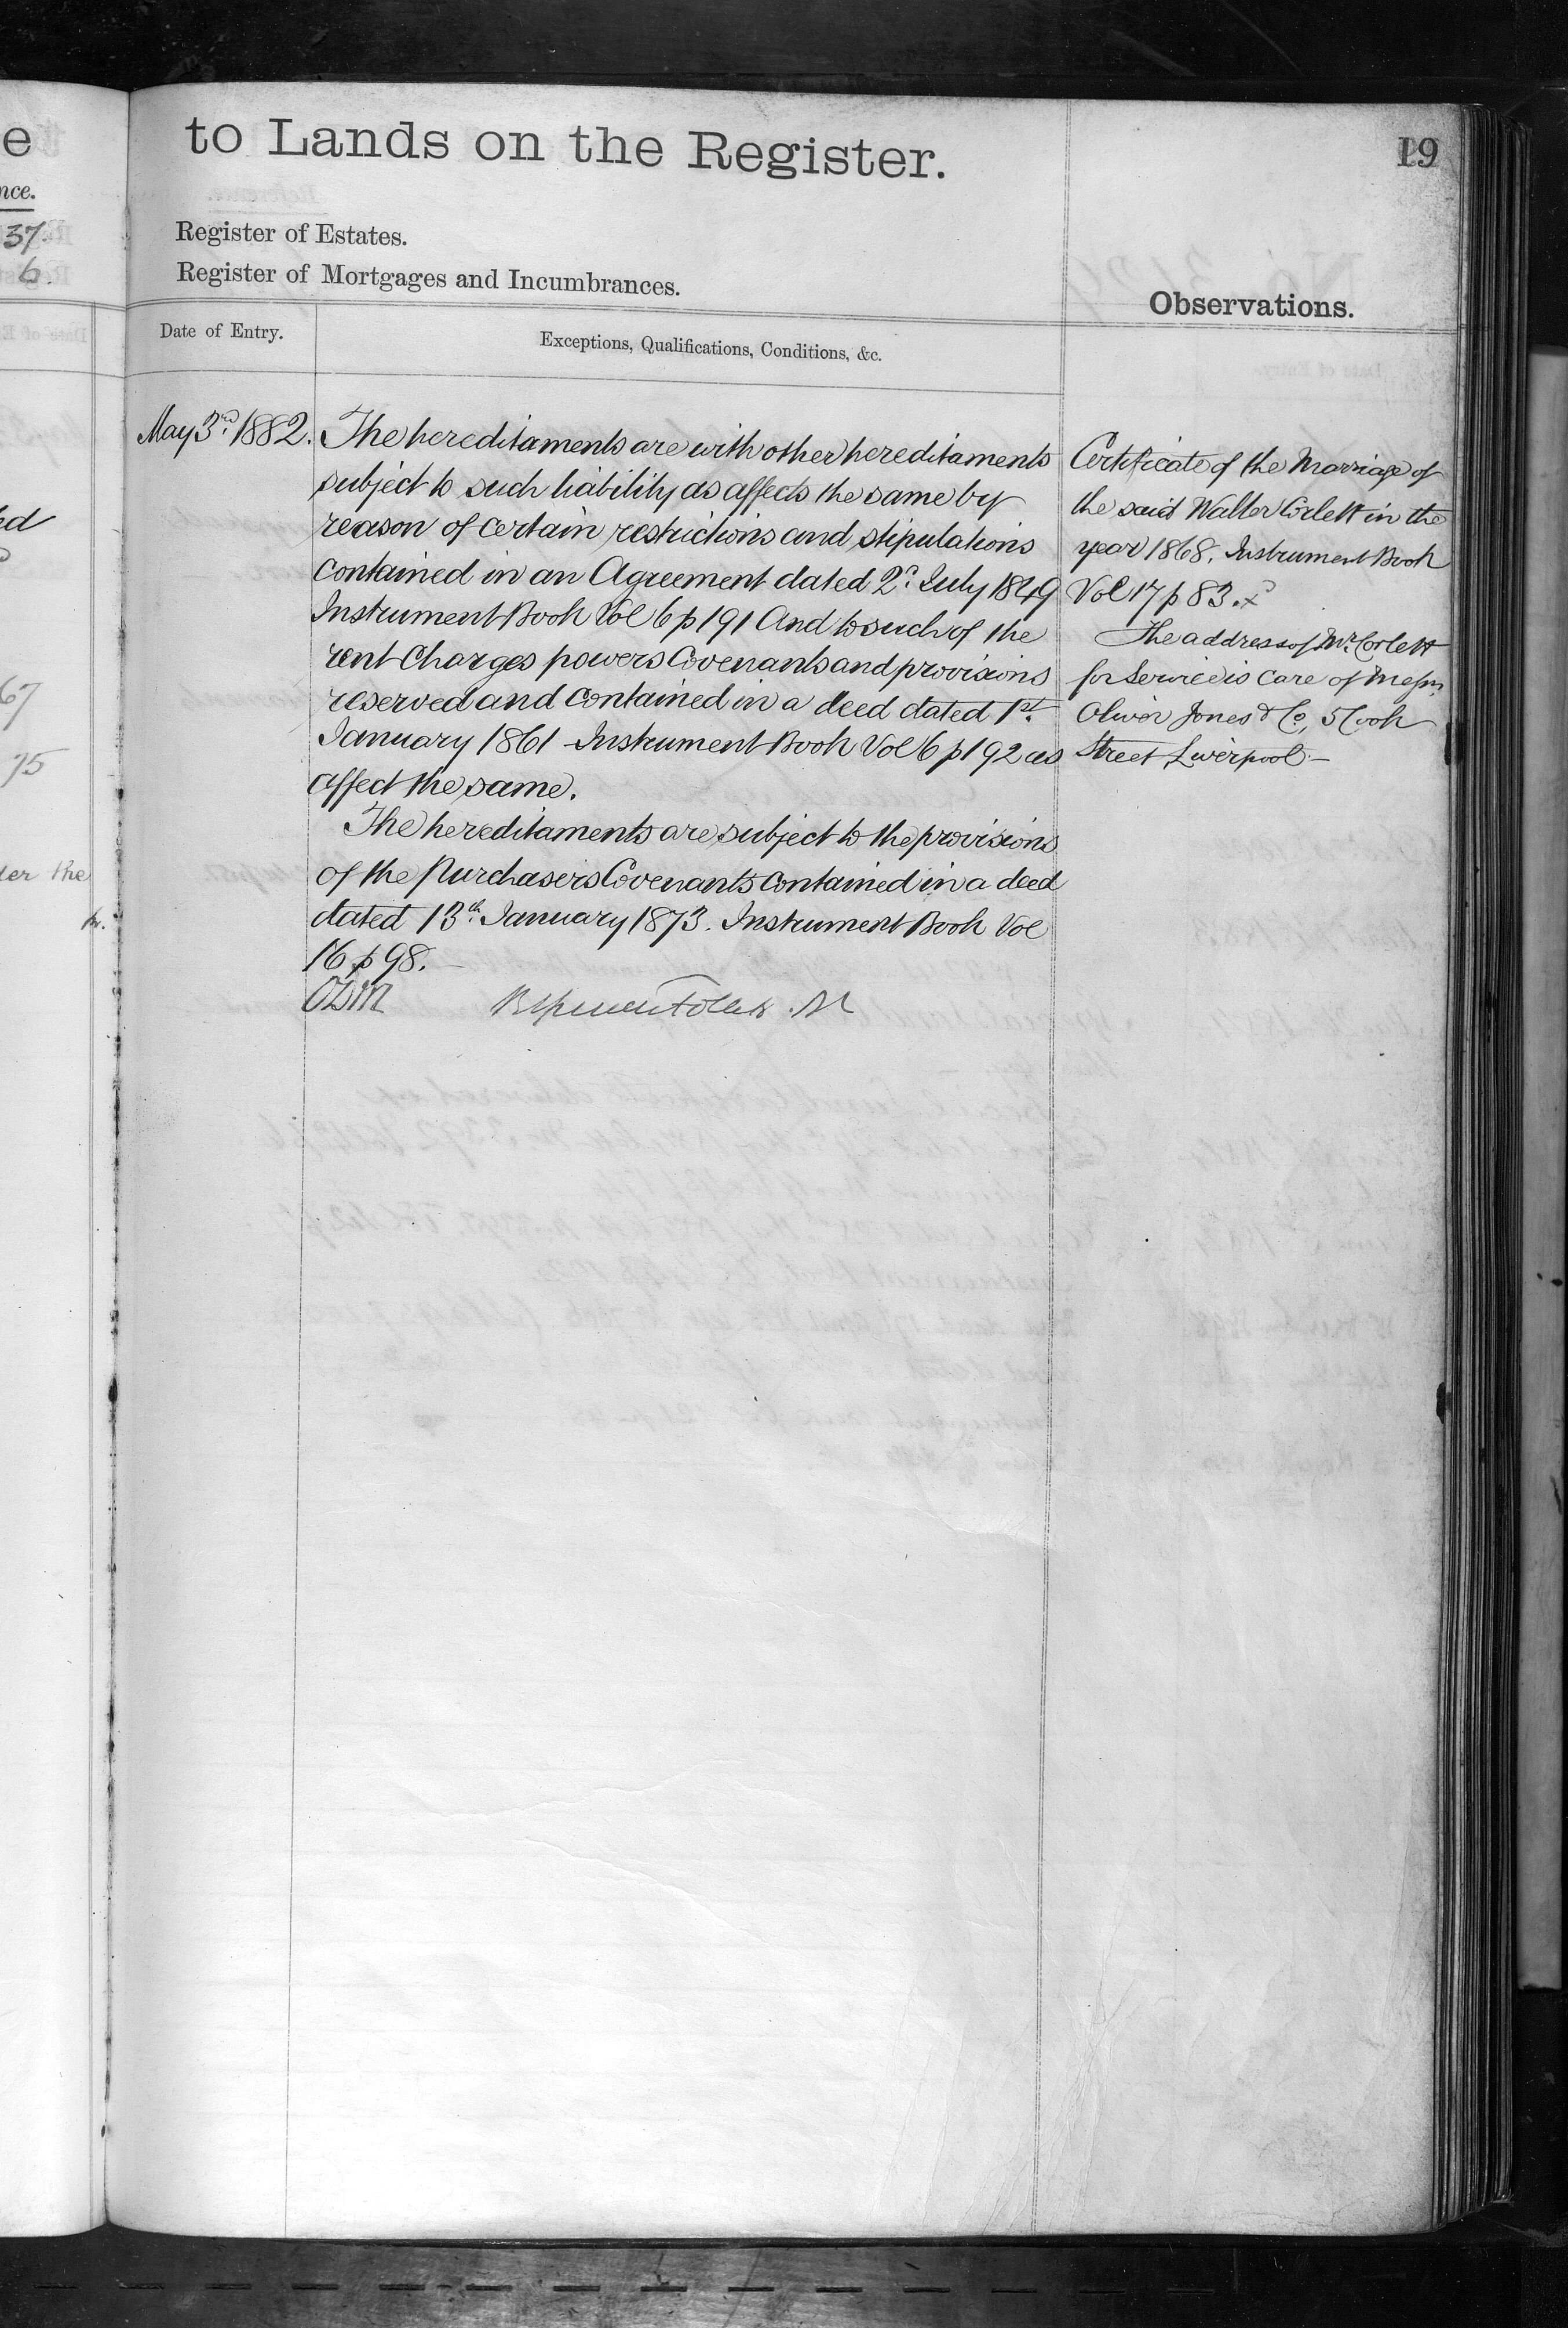 to Lands on the Register.
19
Register of Estates.
Register of Mortgages and Incumbrances.
Date of Entry.
Exceptions, Qualifications, Conditions, &c.
Observations.
May 3rd 1882.
The hereditaments are with other hereditaments
subject to such liability as affects the same by
reason of certain restrictions and stipulations
contained in an Agreement dated 2d July 1849
Instrument Book Vol 6 p 191 And to such of the
rent Charges powers Covenants and provisions
reserved and contained in a deed dated 1st
January 1861 Instrument Book Vol 6 p 192 as
affect the same.
The hereditaments are subject to the provisions
of the Purchasers Covenants contained in a deed
dated 13th January 1873. Instrument Book Vol
16 p 98.
Certificate of the Marriage of
the said Walter Corlett in the
year 1868. Instrument Book
Vol 17 p 83.
The address of Mr Corlett
for Service is Care of Messrs
Oliver Jones & Co, 5 Cook
Street Liverpool
e
nce.
37.
6.
ed
67
75
der the